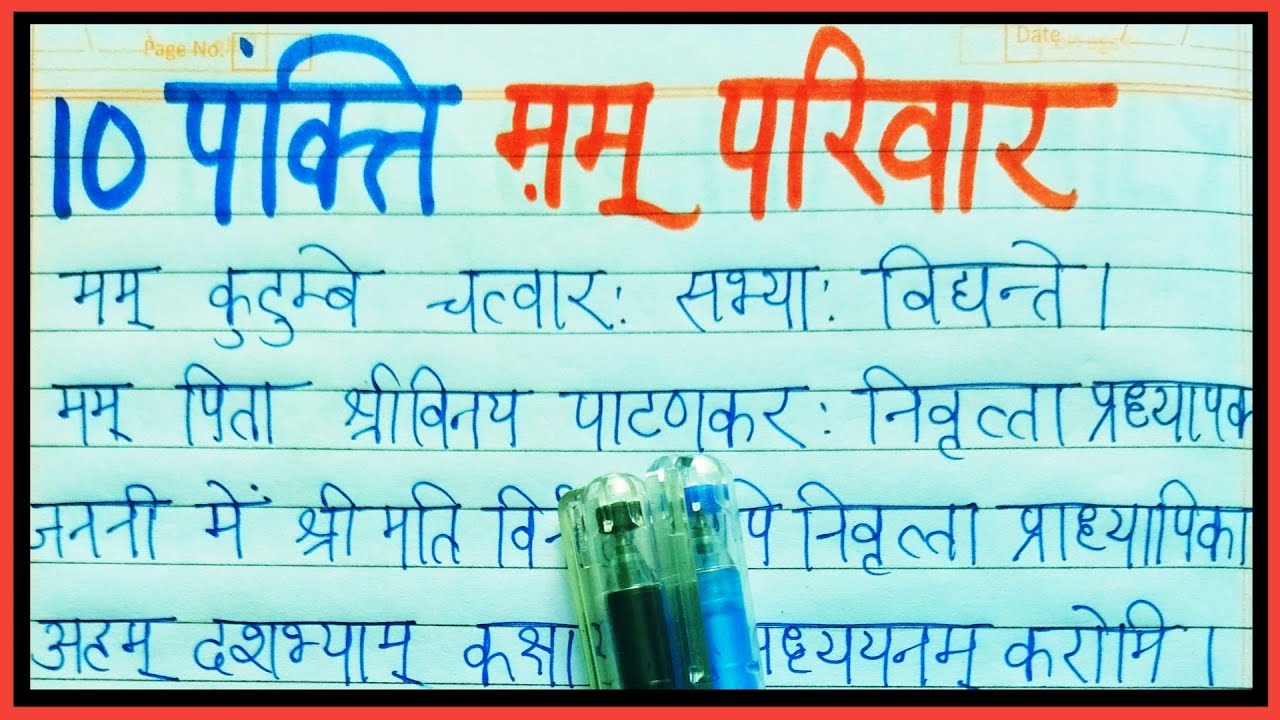 Page No.
Date
10 पंक्ति मम् परिवार
मम् कुटुम्बे चत्वार: सभ्या: विद्यन्ते।
मम् पिता श्रीविनय पाटणकर: निवृत्ता प्रध्यापक
जननी में श्रीमति निवृत्ता प्राध्यापिका
अहम् दशभ्याम् करोमि।